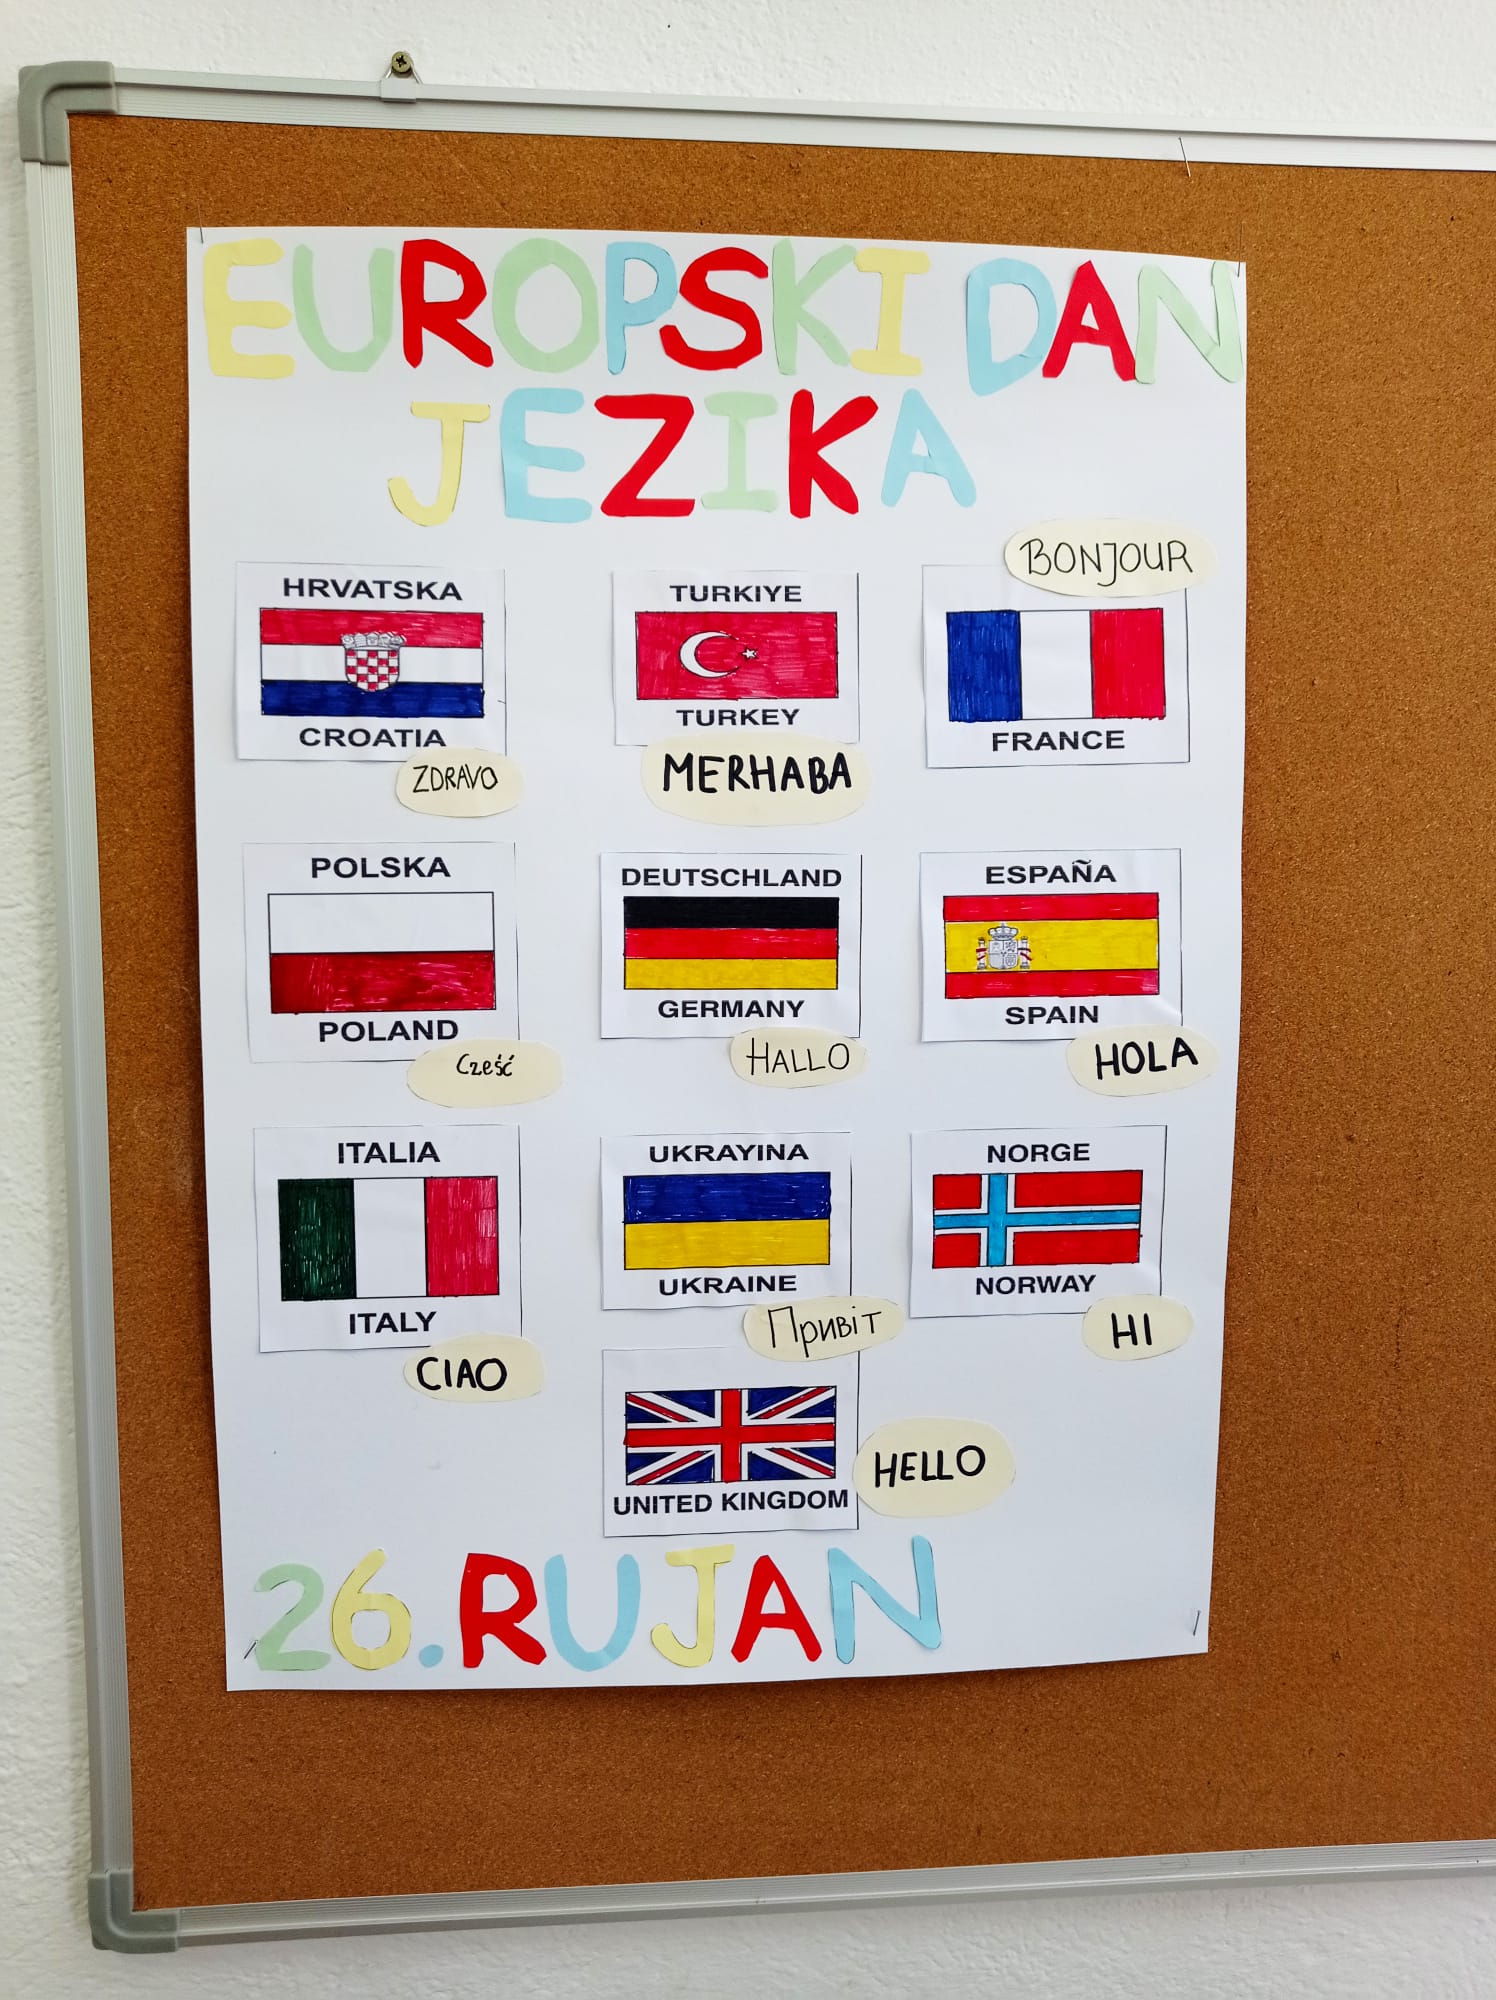 EUROPSKI DAN
JEZIKA
HRVATSKA
CROATIA
ZDRAVO
TURKIYE
TURKEY
MERHABA
BONJOUR
FRANCE
POLSKA
POLAND
Cześć
DEUTSCHLAND
GERMANY
HALLO
ESPAÑA
SPAIN
HOLA
ITALIA
ITALY
CIAO
UKRAYINA
UKRAINE
Привіт
NORGE
NORWAY
HI
UNITED KINGDOM
HELLO
26. RUJAN